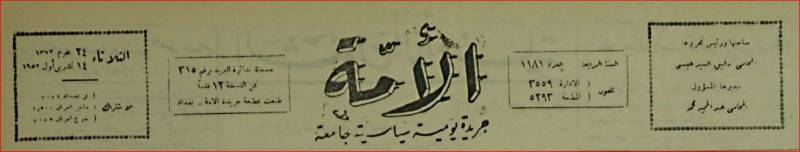 صاحبها ورئيس تحريرها
المحامي رفيق السيد عيسى
مديرها المسؤول
المحامي عبد المجيد محمد
السنة الرابعة العدد ١١٨١
تلفون
الادارة ٣٥٥٩
المطبعة ٥٢٩٣
الأمة
جريدة يومية سياسية جامعة
مسجلة بدائرة البريد رقم ٣١٥
ثمن النسخة ١٢ فلساً
طبعت بمطبعة جريدة الامة - بغداد
الثلاثاء
٢٤ محرم ١٣٧٢
١٤ تشرين اول ١٩٥٢
الاشتراك
داخل العراق
خارج العراق